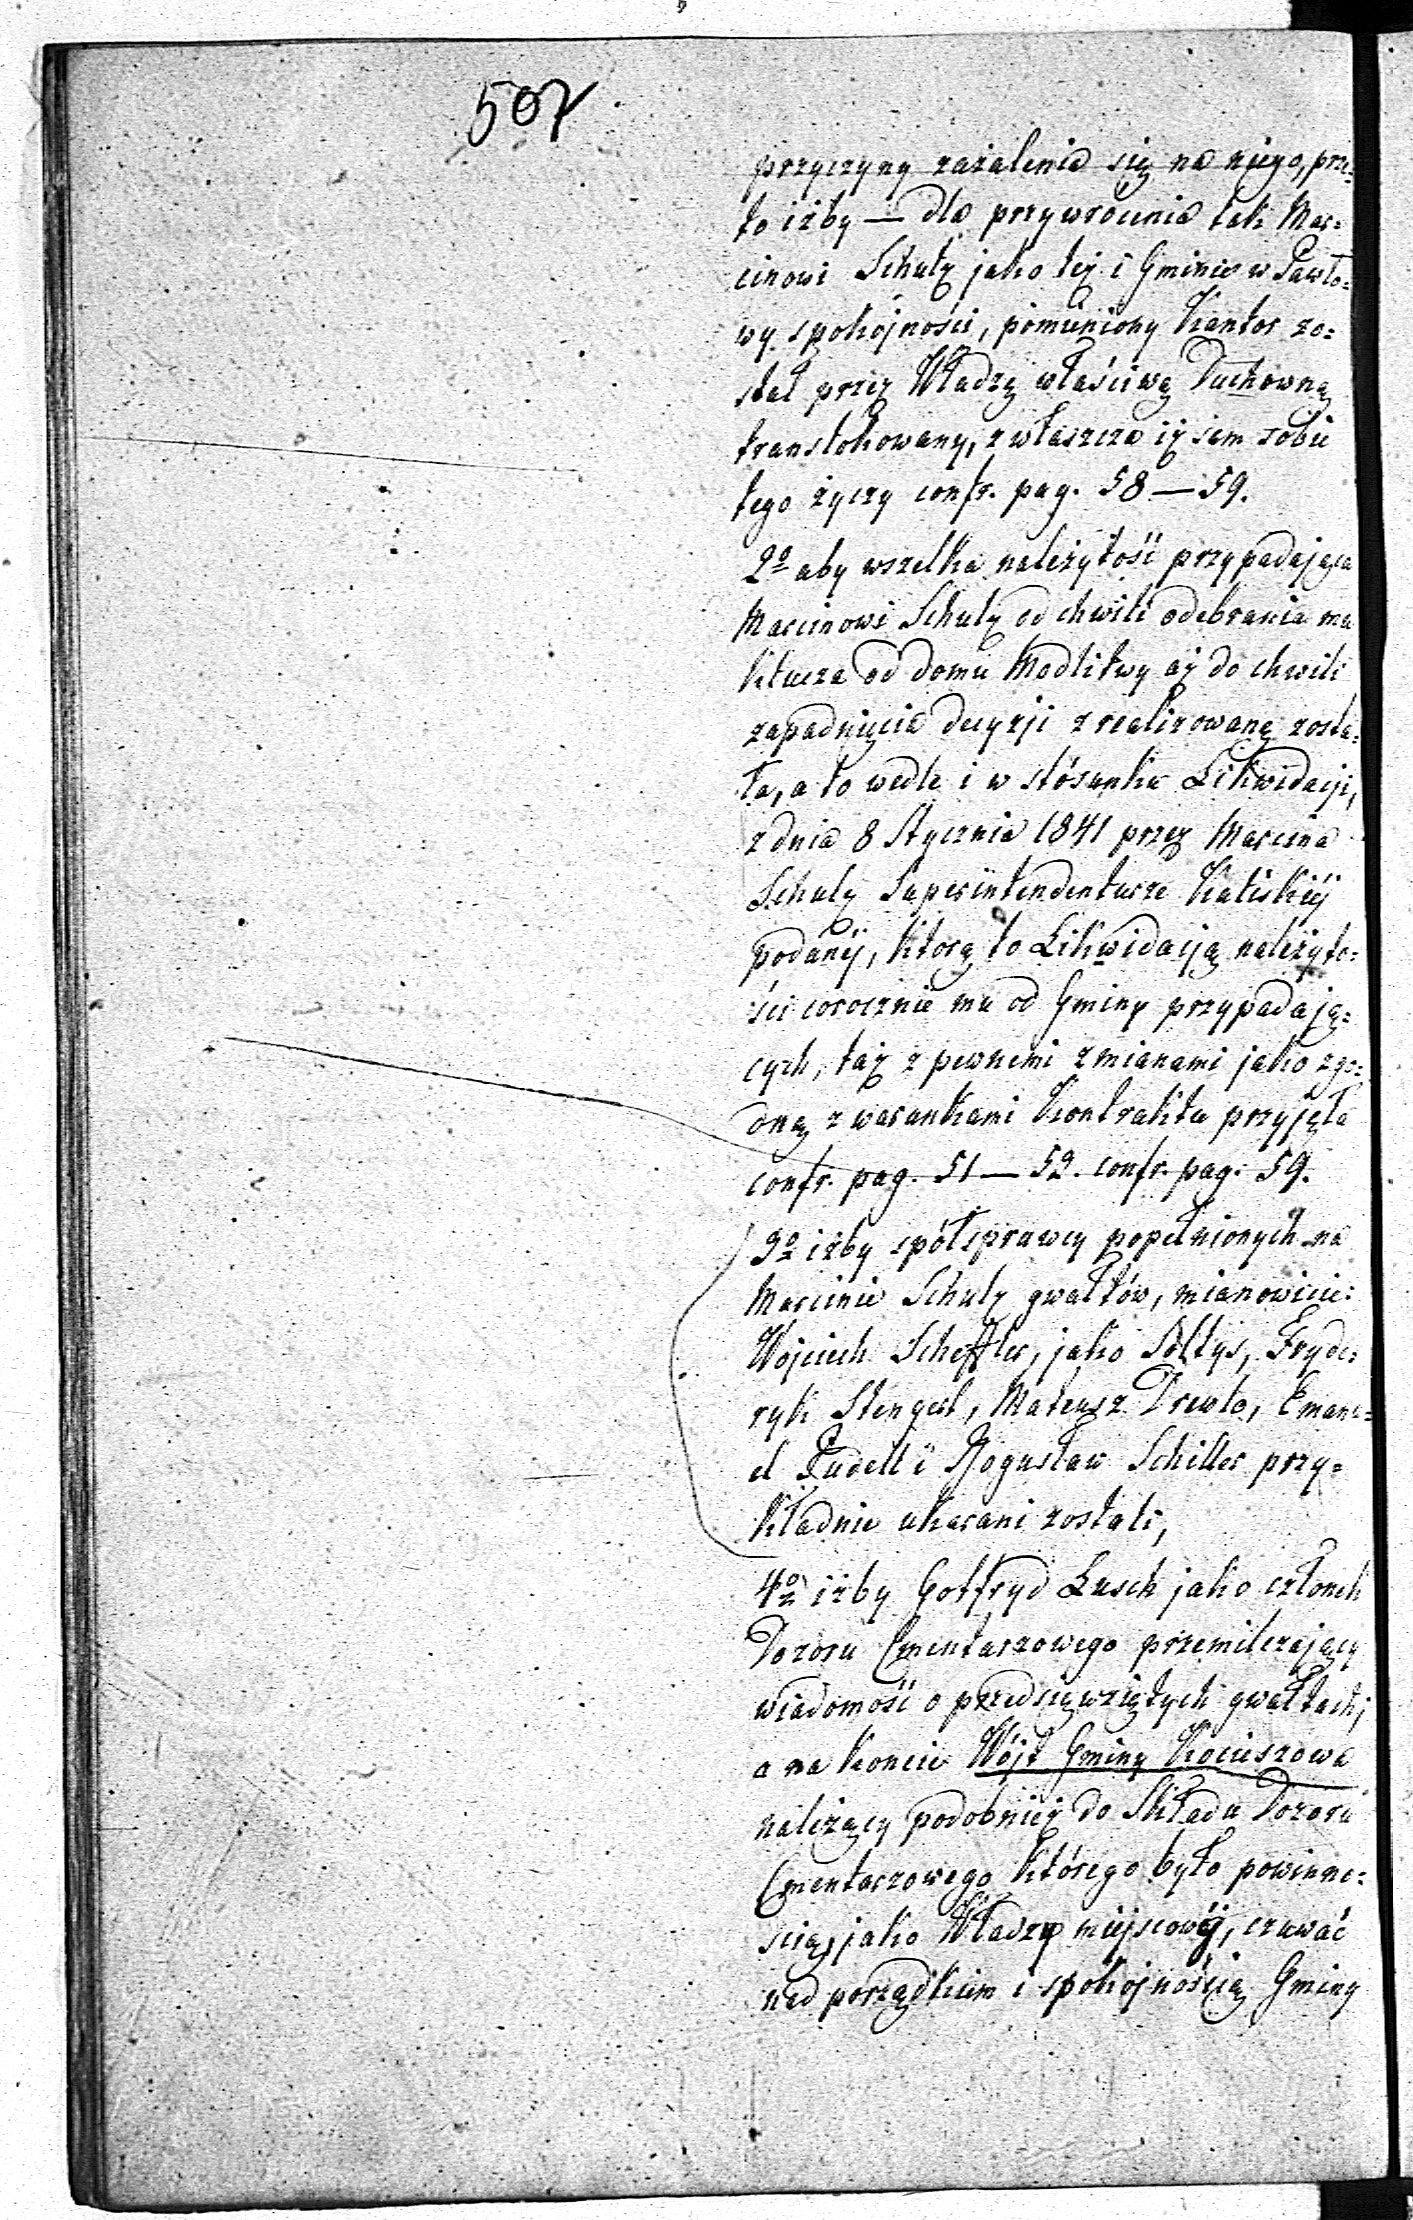 507
przyczyny zażalenia się na niego, prze=
to iżby — dla przywrócenia tak Mar=
cinowi Schulz jako też i Gminie w Pawło=
wy spokojności, pomieniony Kantor zo=
stał przez Władzę właściwą Duchowną
translokowany, zwłaszcza iż sam sobie
tego życzy confr. pag. 58 — 59.
2o aby wszelka należytość przypadająca
Marcinowi Schulz od chwili odebrania mu
klucza od domu Modlitwy aż do chwili
zapadnięcia decyzji zrealizowaną zosta=
ła, a to wedle i w stósunku Likwidacji,
z dnia 8 Stycznia 1841 przez Marcina
Schulz Superintendenturze Kaliskiéj
podanéj, którą to Likwidacją należyto=
ści corocznie mu od Gminy przypadają=
cych, taż z pewnemi zmianami jako zgo=
dną z warunkami Kontraktu przyjęła
confr. pag. 51 — 52. confr. pag. 59.
3o iżby spółsprawcy popełnionych na
Marcinie Schulz gwałtów, mianowicie:
Wojciech Scheffler, jako Sołtys, Fryde=
ryk Stengert, Mateusz Drewlo, Emanu=
el Rudell i Bogusław Schiller przy=
kładnie ukarani zostali,
4o iżby Gottfryd Lusch jako członek
Dozoru Cmentarzowego przemilczający
wiadomość o przedsięwziętych gwałtach,
a na koncie Wójt Gminy Kocieszowa
należący podobnież do Składu Dozoru
Cmentarzowego którego było powinno=
ścią, jako Władzy miejscowéj, czuwać
nad porządkiem i spokojnością Gminy